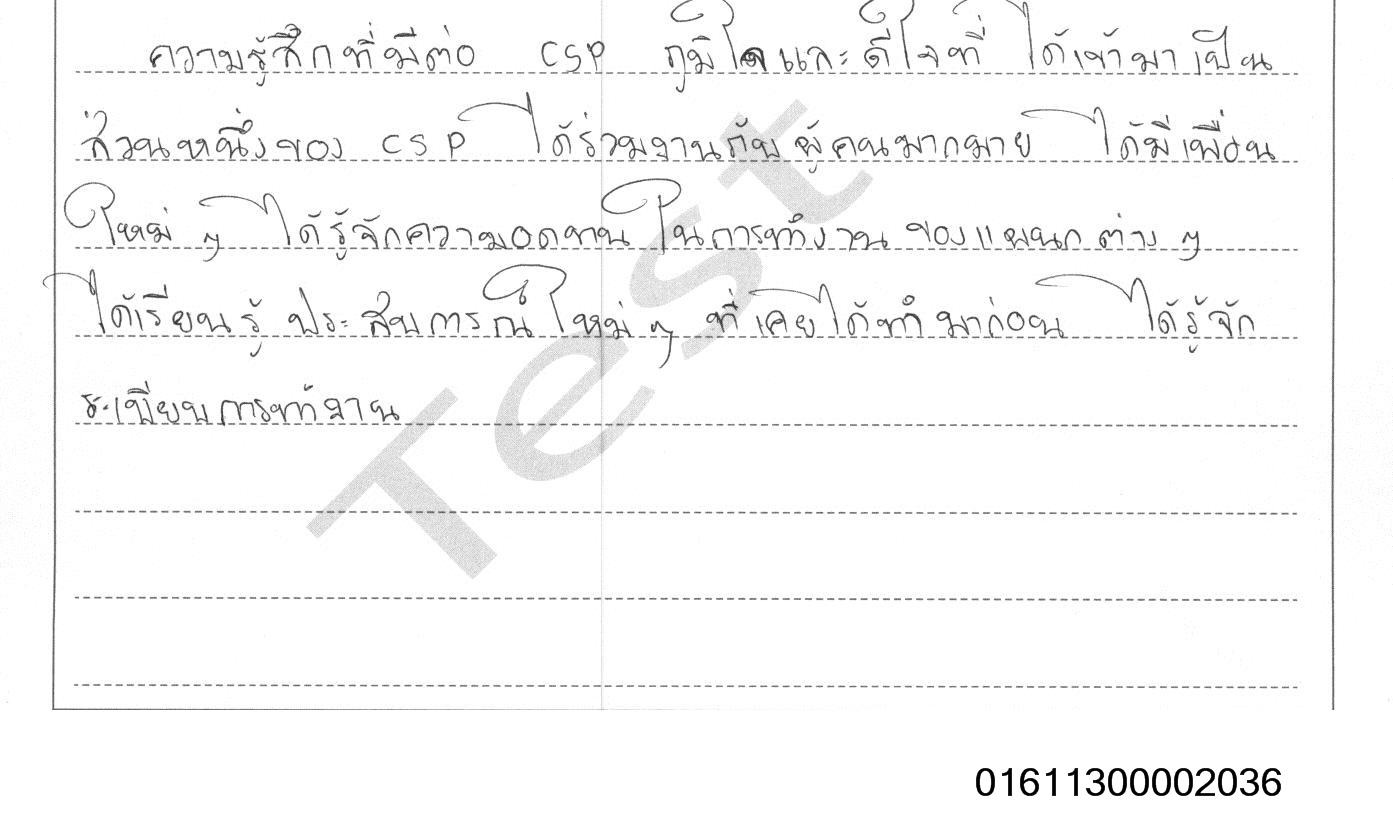 ความรู้สึกที่มีต่อ CSP ภูมิใจและดีใจที่ ได้เข้ามาเป็น
ส่วนหนึ่งของ CSP ได้ร่วมงานกับ ผู้คนมากมาย ได้มีเพื่อน
ใหม่ ๆ ได้รู้จักความอดทน ในการทำงาน ของแผนกต่าง ๆ
ได้เรียนรู้ ประสบการณ์ ใหม่ ๆ ที่เคยได้ทำมาก่อน ได้รู้จัก
ระเบียบการทำงาน
Test
01611300002036